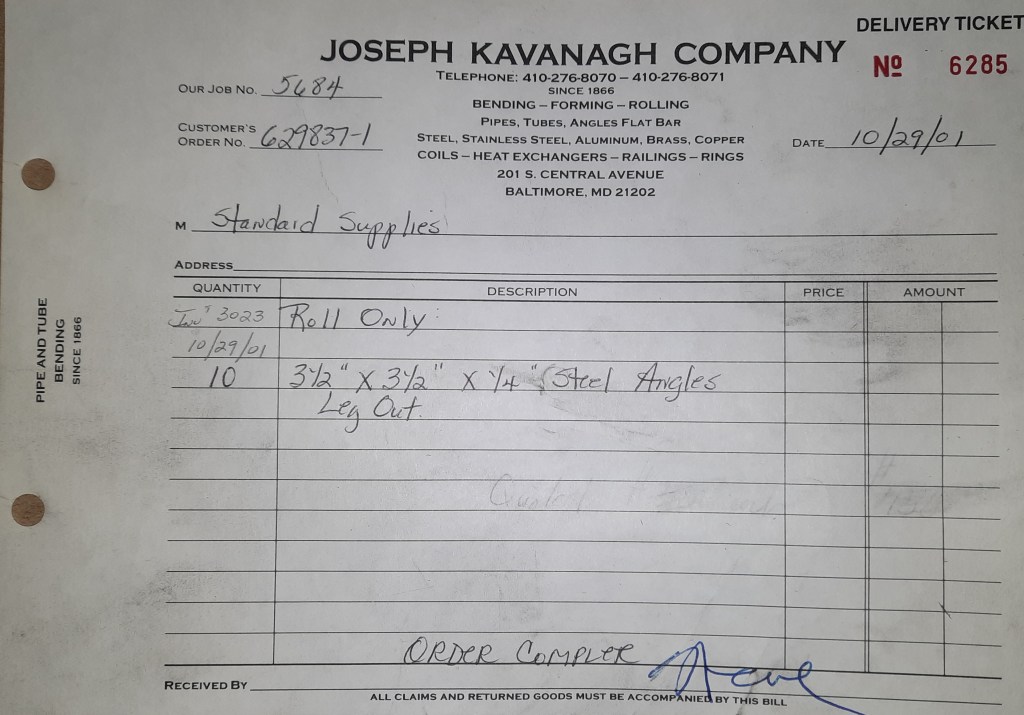 DELIVERY TICKET
JOSEPH KAVANAGH COMPANY
Nº 6285
TELEPHONE: 410-276-8070 – 410-276-8071
SINCE 1866
OUR JOB NO. 5684
BENDING – FORMING – ROLLING
PIPES, TUBES, ANGLES FLAT BAR
CUSTOMER'S
ORDER NO. 629837-1
STEEL, STAINLESS STEEL, ALUMINUM, BRASS, COPPER
DATE 10/29/01
COILS – HEAT EXCHANGERS – RAILINGS – RINGS
201 S. CENTRAL AVENUE
BALTIMORE, MD 21202
M Standard Supplies
ADDRESS
QUANTITY DESCRIPTION PRICE AMOUNT
3023 Roll Only:
10/29/01
10 3 1/2" X 3 1/2" X 1/4" Steel Angles
Leg Out.
PIPE AND TUBE
BENDING
SINCE 1866
ORDER
RECEIVED BY
ALL CLAIMS AND RETURNED GOODS MUST BE ACCOMPANIED BY THIS BILL